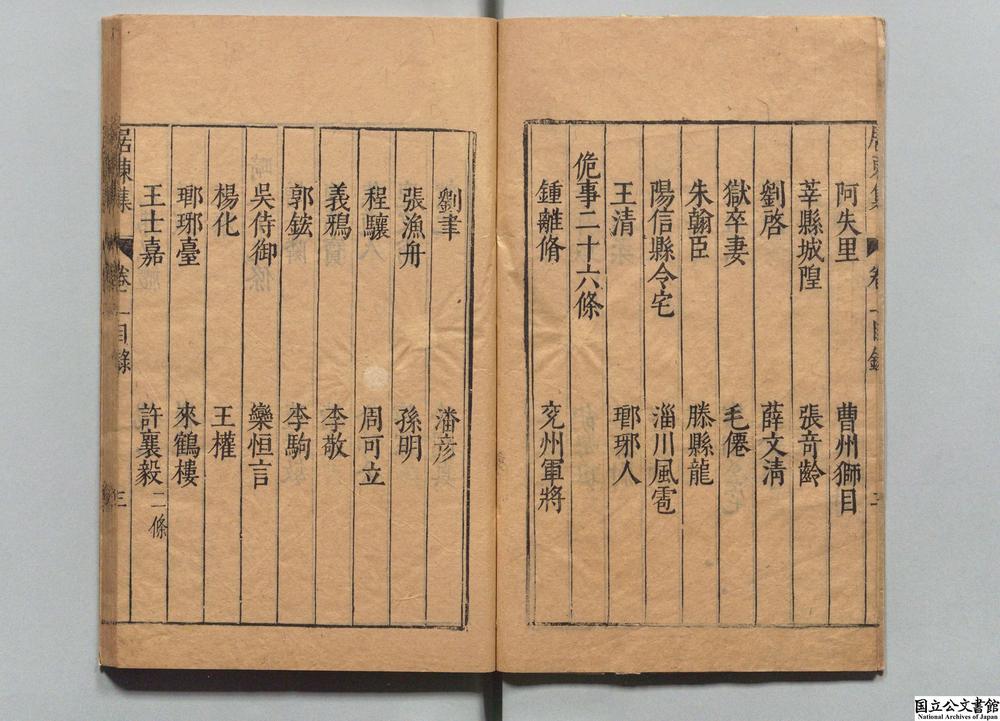 居東集 卷一目錄 三
阿失里 曹州獅目
莘縣城隍 張竒齡
劉啓 薛文清
獄卒妻 毛僊
朱翰臣 滕縣龍
陽信縣令宅 淄川風雹
王清 瑯琊人
佹事二十六條
鍾離脩 兖州軍將
劉聿 潘彦
張漁舟 孫明
程驤 周可立
義鴉 李敬
郭鋐 李駒
吳侍御 欒恒言
楊化 王權
瑯琊臺 來鶴樓
王士嘉 許襄毅二條
居東集 卷一目錄 三
国立公文書館
National Archives of Japan